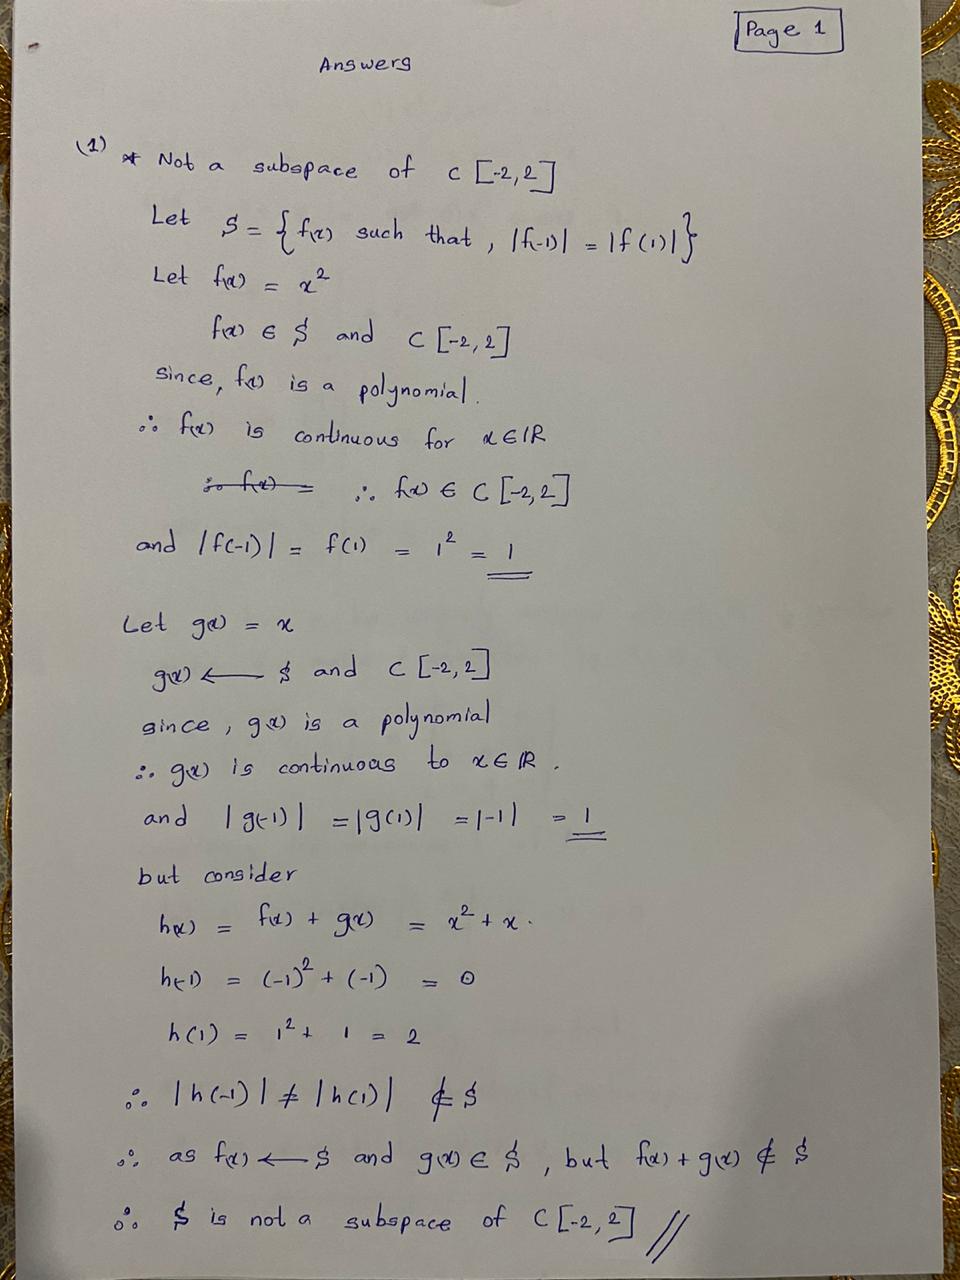 Page 1
Answers
(1) * Not a subspace of C [-2,2]
Let S = { f(x) such that , |f(-1)| = |f(1)| }
Let f(x) = x²
f(x) ∈ S and C [-2,2]
since, f(x) is a polynomial.
∴ f(x) is continuous for x ∈ IR
∴ f(x) = ∴ f(x) ∈ C [-2,2]
and |f(-1)| = f(1) = 1² = 1
Let g(x) = x
g(x) ← S and C [-2,2]
since , g(x) is a polynomial
∴ g(x) is continuous to x ∈ IR .
and |g(-1)| = |g(1)| = |-1| = 1
but consider
h(x) = f(x) + g(x) = x² + x .
h(-1) = (-1)² + (-1) = 0
h(1) = 1² + 1 = 2
∴ |h(-1)| ≠ |h(1)| ∉ S
∴ as f(x) ← S and g(x) ∈ S , but f(x) + g(x) ∉ S
∴ S is not a subspace of C [-2,2] //